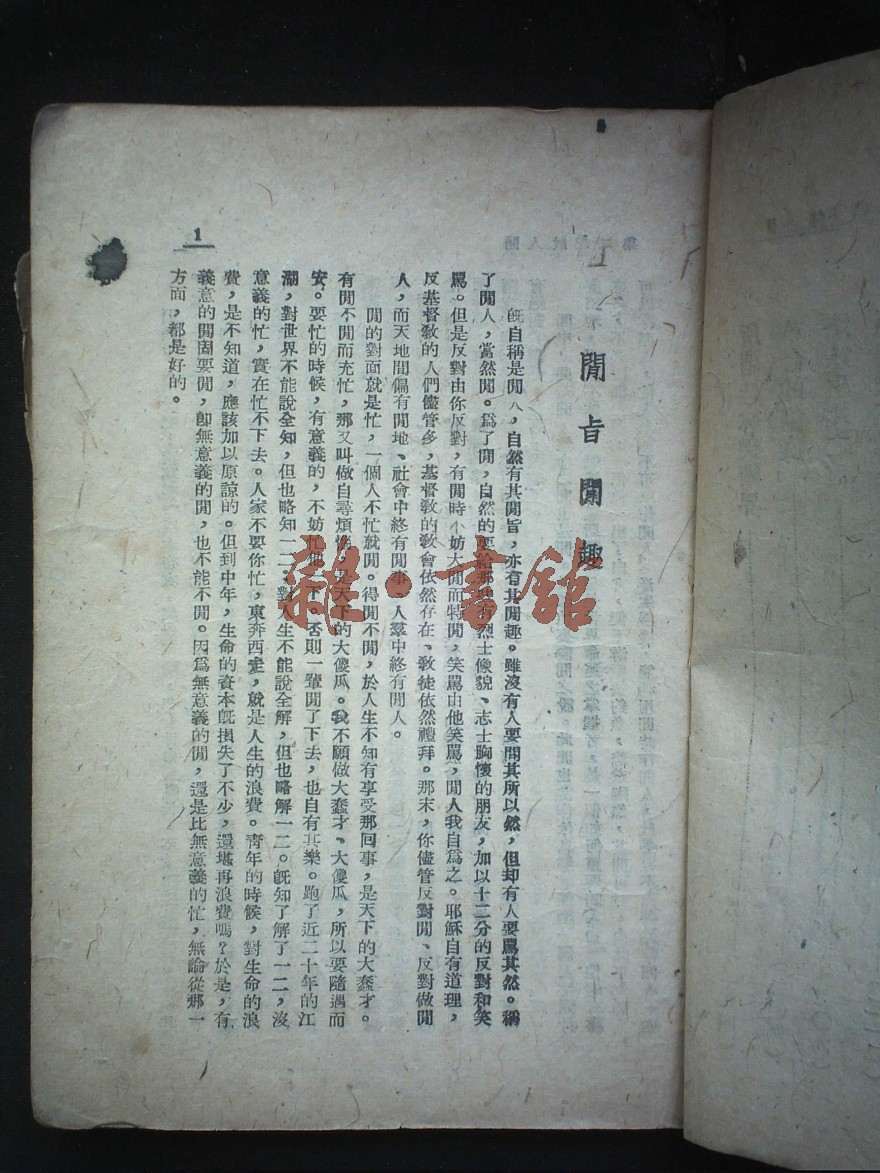 閒旨閒趣
既自稱是閒人,自然有其閒旨,亦有其閒趣。雖沒有人要問其所以然,但却有人要罵其然。稱
了閒人,當然閒。爲了閒,自然的要給那些有烈士像貌、志士胸懷的朋友,加以十二分的反對和笑
罵。但是反對由你反對,有閒時不妨大閒而特閒,笑罵由他笑罵,閒人我自爲之。耶穌自有道理,
反基督敎的人們儘管多,基督敎的敎會依然存在、敎徒依然禮拜。那末,你儘管反對閒、反對做閒
人,而天地間偏有閒地、社會中終有閒事、人羣中終有閒人。
閒的對面就是忙,一個人不忙就閒。得閒不閒,於人生不知有享受那回事,是天下的大蠢才。
有閒不閒而充忙,那又叫做自尋煩惱,是天下的大傻瓜。我不願做大蠢才、大傻瓜,所以要隨遇而
安。要忙的時候,有意義的,不妨忙他一下,否則一輩閒了下去,也自有其樂。跑了近二十年的江
湖,對世界不能說全知,但也略知一二;對人生不能說全解,但也略解一二。既知了解了一二,沒
意義的忙,實在忙不下去。人家不要你忙,東奔西走,就是人生的浪費。靑年的時候,對生命的浪
費,是不知道,應該加以原諒的。但到中年,生命的資本旣損失了不少,還堪再浪費嗎?於是,有
義意的閒固要閒,卽無意義的閒,也不能不閒。因爲無意義的閒,還是比無意義的忙,無論從那一
方面,都是好的。
1
雜·書舘